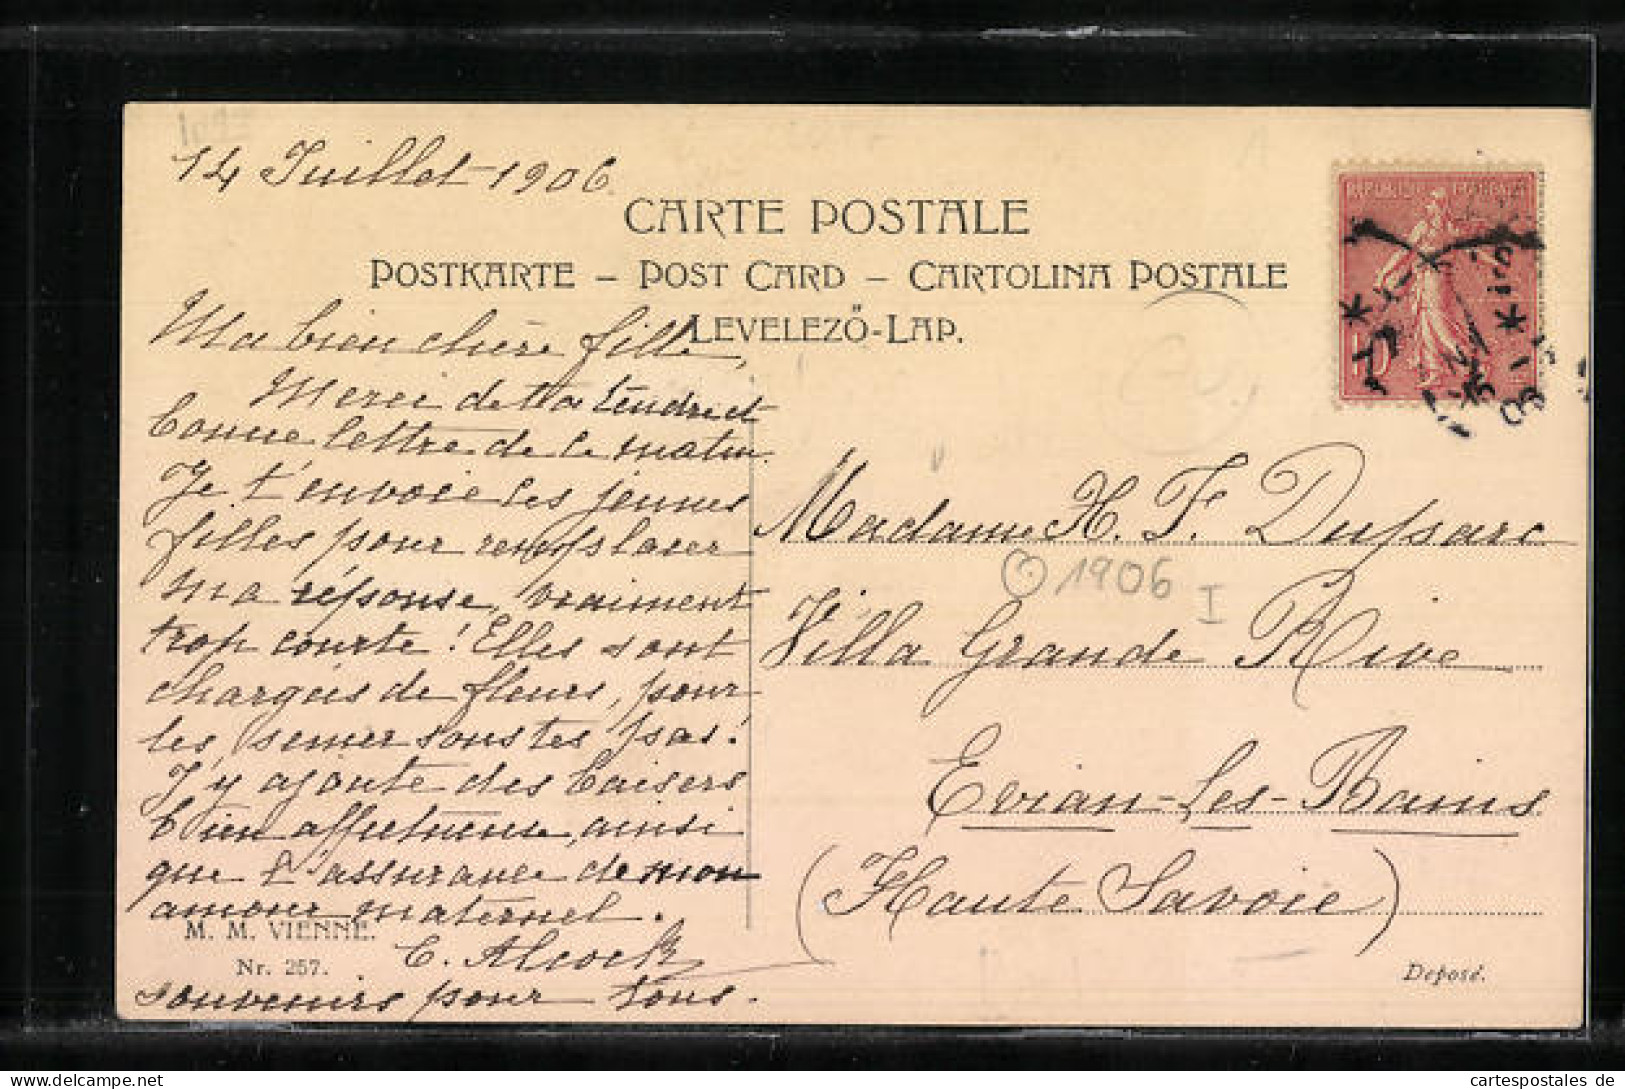 14 Juillet 1906
CARTE POSTALE
POSTKARTE – POST CARD – CARTOLINA POSTALE
LEVELEZŐ-LAP.
Ma bien chère fille,
Merci de ta tendre et
bonne lettre de ce matin.
Je t'envoie les jeunes
filles pour remplacer
ma réponse, vraiment
trop courte! Elles sont
chargées de fleurs, pour
les semer sous tes pas!
J'y ajoute des baisers
bien affectueux, ainsi
que l'assurance de mon
amour maternel.
C. Alcock
souvenirs pour tous.
M. M. VIENNE.
Nr. 257.
REPUBLIQUE FRANÇAISE
10
Madame H. F. Dussarc
1906 I
Villa Grande Rive
Evian-Les-Bains
(Haute Savoie)
Deposé.
cartespostales de